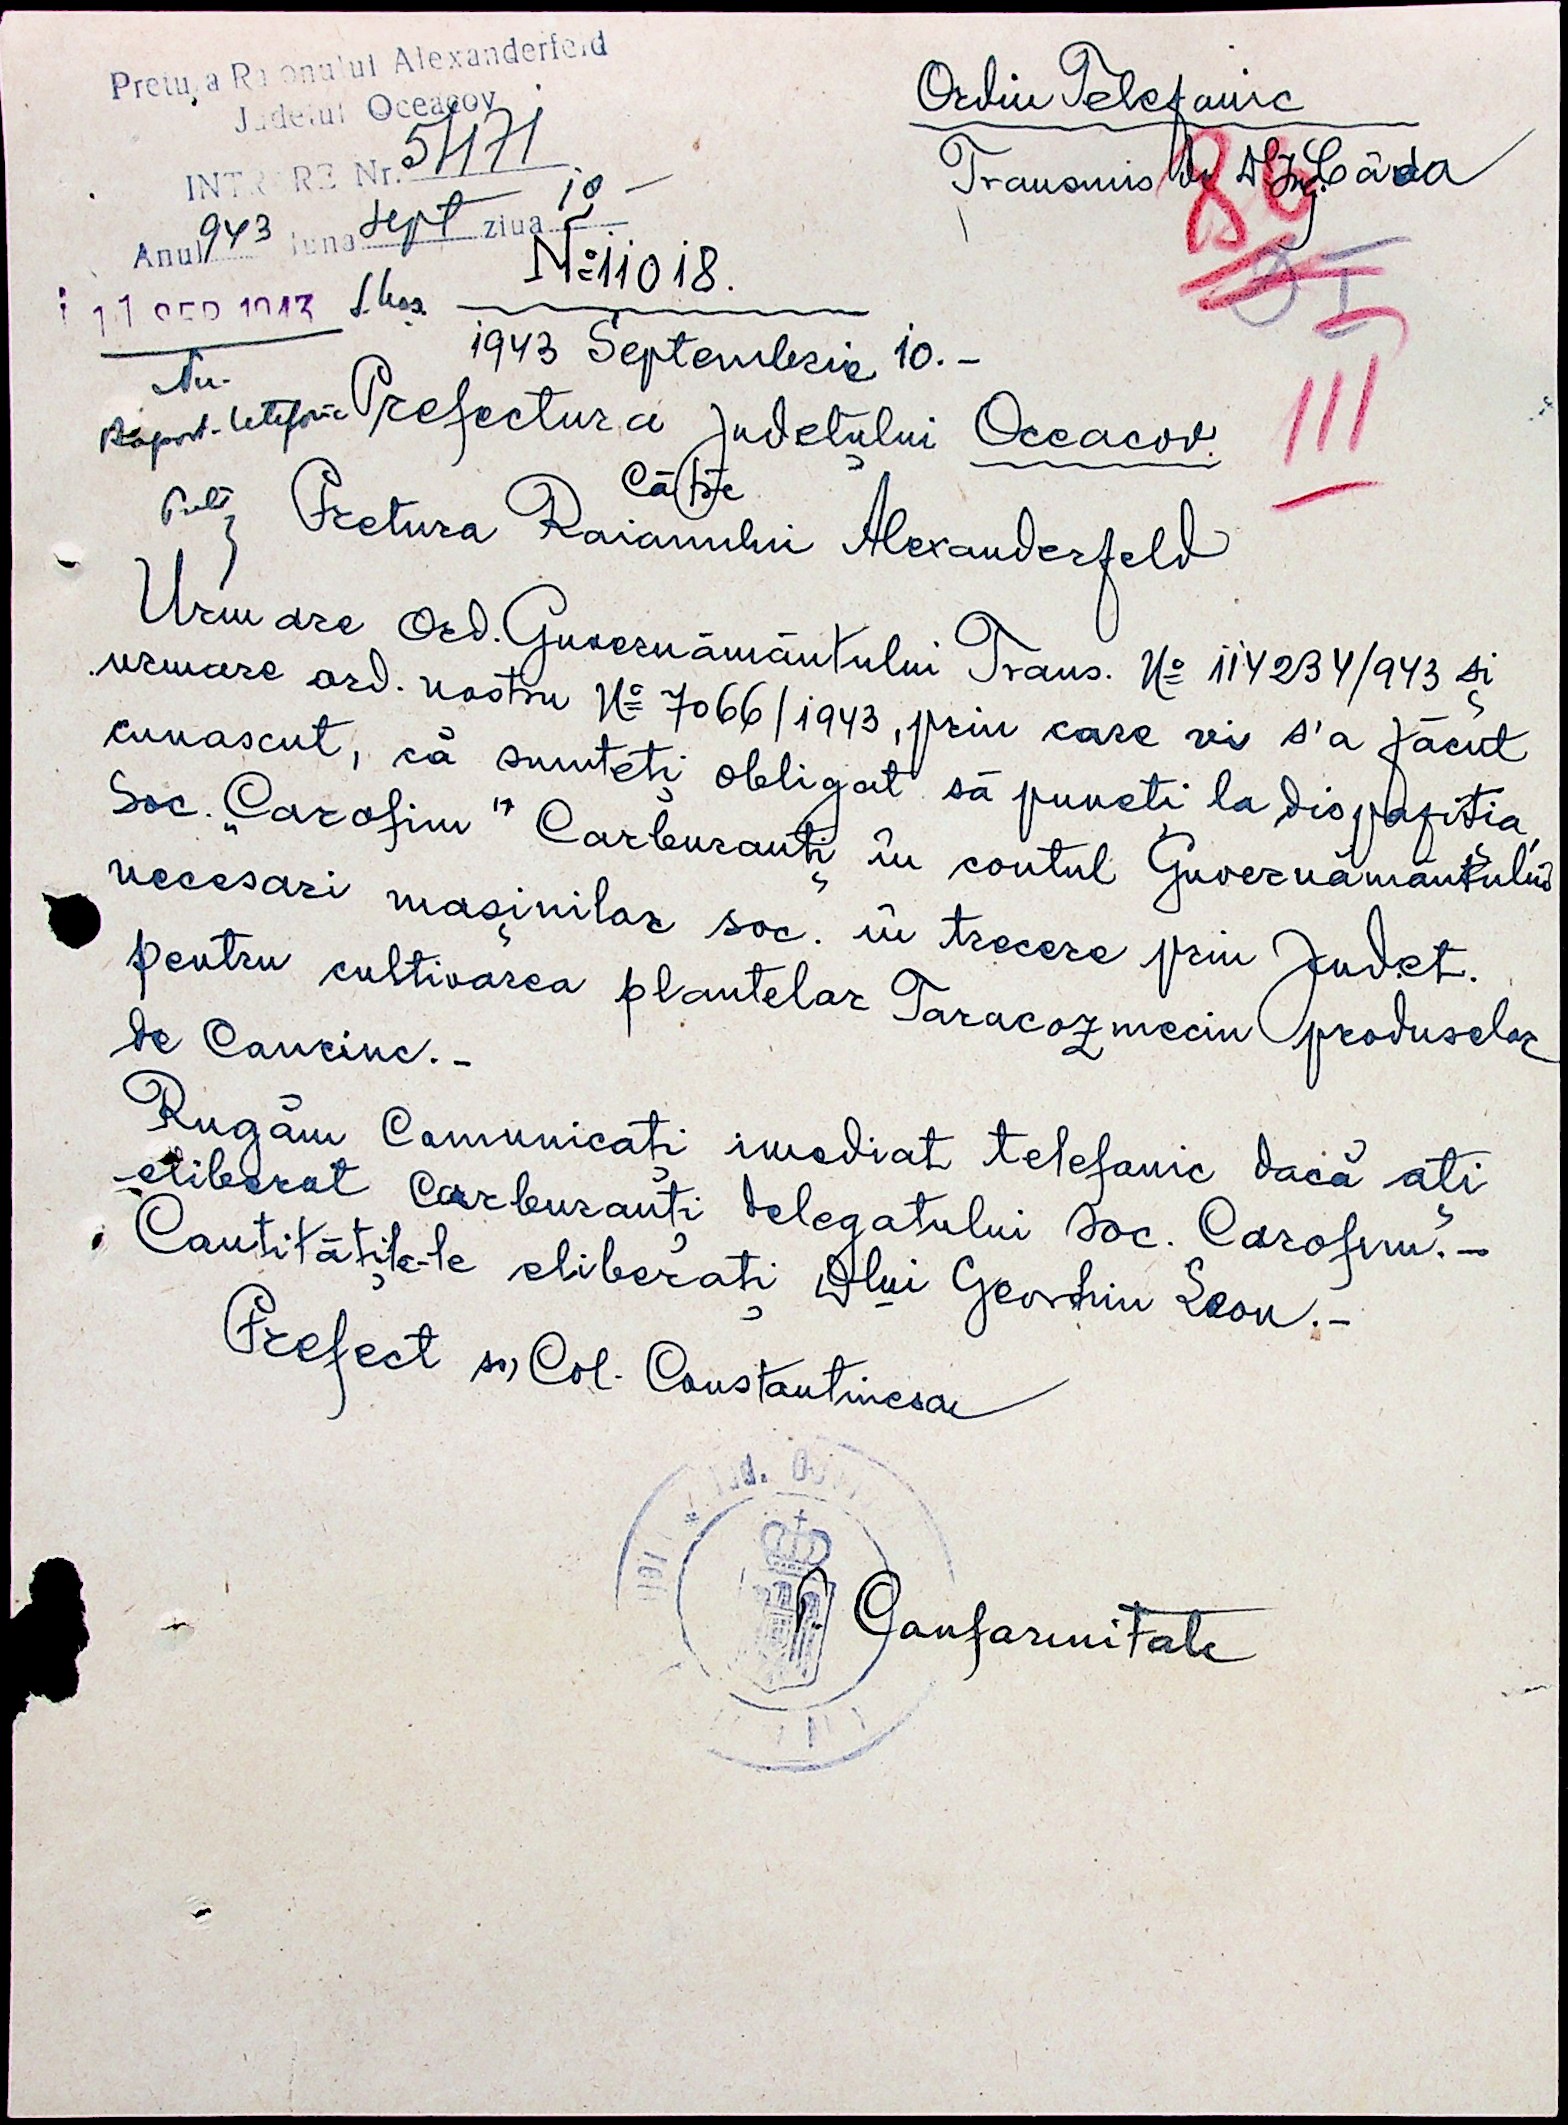 Pretura Raionului Alexanderfeld
Județul Oceacov
INTRARE Nr. 5471
Anul 943 luna sept ziua 10 -
11 SEP 1943
Ordin Telefonic
Transmis de D Ing. Câda
88
III
№ 11018.
1943 Septembrie 10.-
Raport telefonic
Prefectura Județului Oceacov.
Către
Pretura Raionului Alexanderfeld
Urmare Ord. Guvernământului Trans. № 114234/943 și
urmare ord. nostru № 7066/1943, prin care vi s'a făcut
cunoscut, că sunteți obligat să puneți la dispoziția,
Soc. „Carofim" Carburanți în contul Guvernământului
necesari mașinilor soc. în trecere prin Judet.
pentru cultivarea plantelor Taracozmecin produselor
de Caucinc.-
Rugăm Comunicați imediat telefonic dacă ați
eliberat Carburanți delegatului Soc. Carofim.-
Cantitățile-le eliberați Dlui Georhin Leon.-
Prefect ss, Col. Constantinescu
Jud. O
p. Conformitate